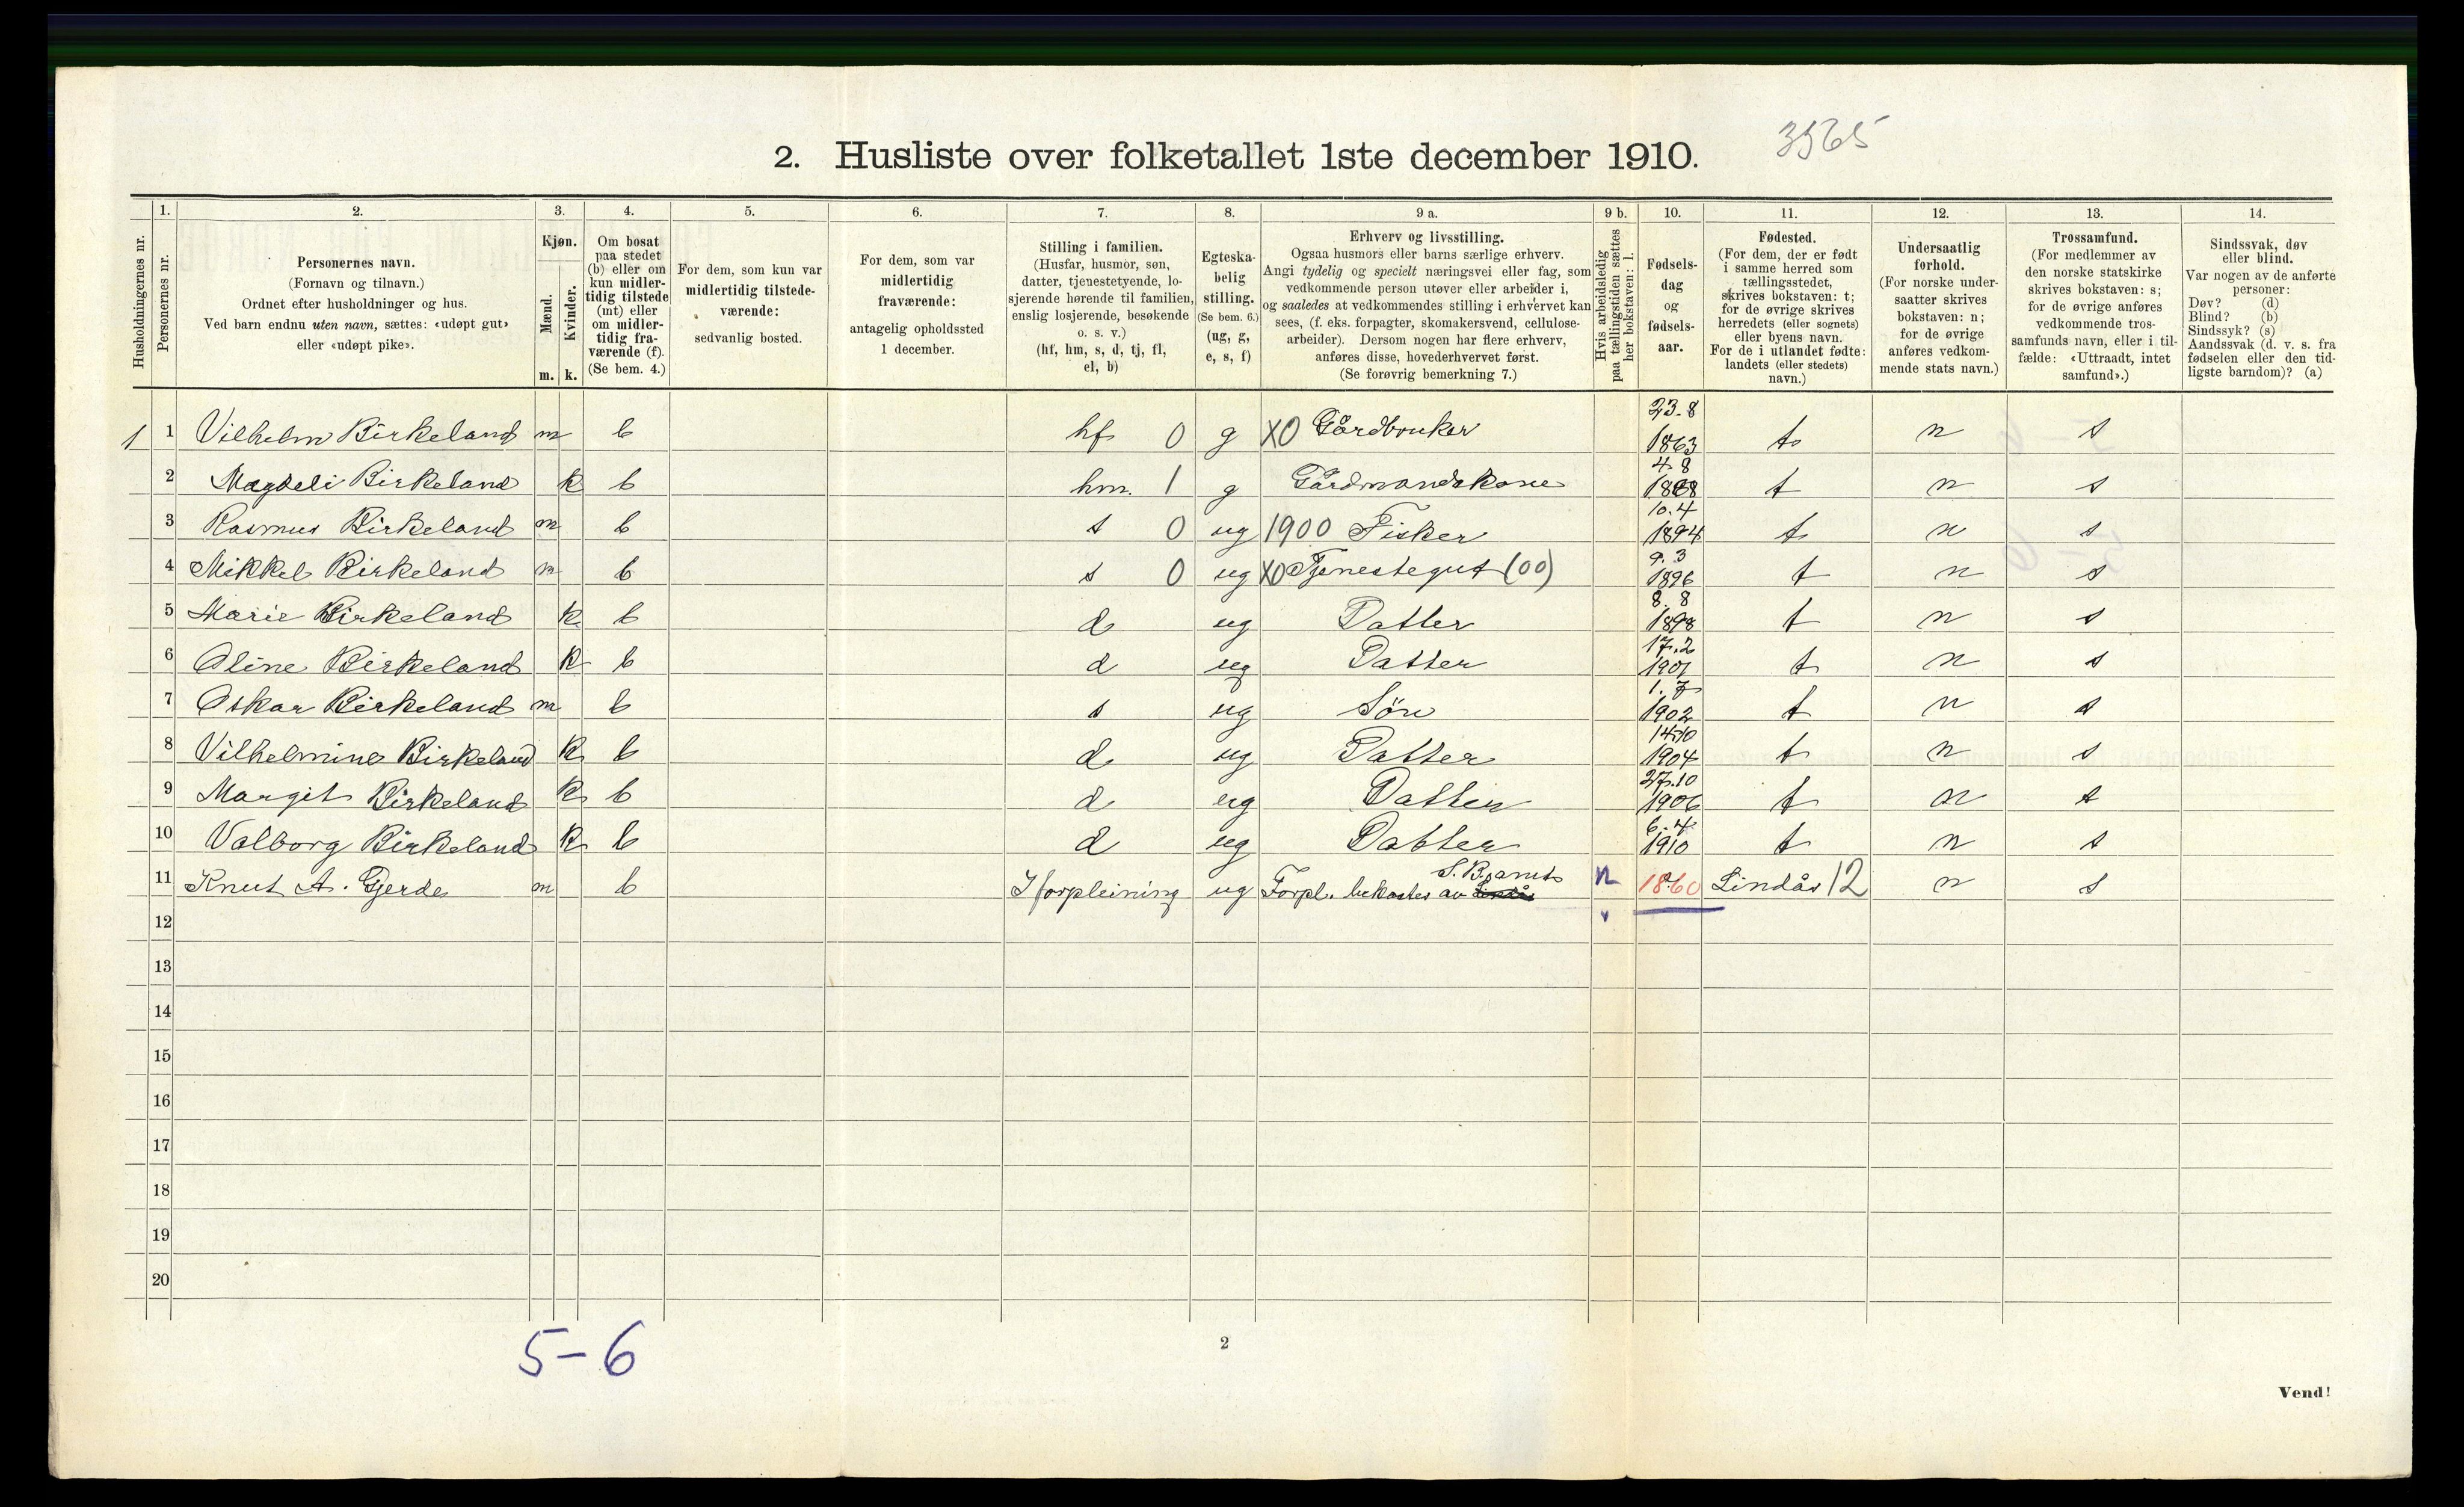 3565
2. Husliste over folketallet 1ste december 1910.
1. 2. 3. 4. 5. 6. 7. 8. 9 a. 9 b. 10. 11. 12. 13. 14.
Husholdningernes nr.
Personernes nr.
Personernes navn.
(Fornavn og tilnavn.)
Ordnet efter husholdninger og hus.
Ved barn endnu uten navn, sættes: «udøpt gut»
eller «udøpt pike».
Kjøn.
Mænd.
Kvinder.
m. k.
Om bosat
paa stedet
(b) eller om
kun midler-
tidig tilstede
(mt) eller
om midler-
tidig fra-
værende (f).
(Se bem. 4.)
For dem, som kun var
midlertidig tilstede-
værende:
sedvanlig bosted.
For dem, som var
midlertidig
fraværende:
antagelig opholdssted
1 december.
Stilling i familien.
(Husfar, husmor, søn,
datter, tjenestetyende, lo-
sjerende hørende til familien,
enslig losjerende, besøkende
o. s. v.)
(hf, hm, s, d, tj, fl,
el, b)
Egteska-
belig
stilling.
(Se bem. 6.)
(ug, g,
e, s, f)
Erhverv og livsstilling.
Ogsaa husmors eller barns særlige erhverv.
Angi tydelig og specielt næringsvei eller fag, som
vedkommende person utøver eller arbeider i,
og saaledes at vedkommendes stilling i erhvervet kan
sees, (f. eks. forpagter, skomakersvend, cellulose-
arbeider). Dersom nogen har flere erhverv,
anføres disse, hovederhvervet først.
(Se forøvrig bemerkning 7.)
Hvis arbeidsledig
paa tællingstiden sættes
her bokstaven: l.
Fødsels-
dag
og
fødsels-
aar.
Fødested.
(For dem, der er født
i samme herred som
tællingsstedet,
skrives bokstaven: t;
for de øvrige skrives
herredets (eller sognets)
eller byens navn.
For de i utlandet fødte:
landets (eller stedets)
navn.)
Undersaatlig
forhold.
(For norske under-
saatter skrives
bokstaven: n;
for de øvrige
anføres vedkom-
mende stats navn.)
Trossamfund.
(For medlemmer av
den norske statskirke
skrives bokstaven: s;
for de øvrige anføres
vedkommende tros-
samfunds navn, eller i til-
fælde: «Uttraadt, intet
samfund».)
Sindssvak, døv
eller blind.
Var nogen av de anførte
personer:
Døv? (d)
Blind? (b)
Sindssyk? (s)
Aandssvak (d. v. s. fra
fødselen eller den tid-
ligste barndom)? (a)
1 1 Vilhelm Birkeland m b hf 0 g X0 Gårdbruker 23.8 1863 t n s
2 Magdeli Birkeland k b hm. 1 g Gårdmandskone 4.8 1868 t n s
3 Rasmus Birkeland m b s 0 ug 1900 Fisker 10.4 1894 t n s
4 Mikkel Birkeland m b s 0 ug X0 Tjenestegut (00) 9.3 1896 t n s
5 Marie Birkeland k b d ug Datter 8.8 1898 t n s
6 Oline Birkeland k b d ug Datter 17.2 1901 t n s
7 Oskar Birkeland m b s ug Søn 1.7 1902 t n s
8 Vilhelmine Birkeland k b d ug Datter 14.10 1904 t n s
9 Margit Birkeland k b d ug Datter 27.10 1906 t n s
10 Valborg Birkeland k b d ug Datter 6.4 1910 t n s
11 Knut A. Gjerde m b I forpleining ug Forpl. bekostes av S. B.amt n 1860 Lindås 12 n s
12
13
14
15
16
17
18
19
20
5-6
2
Vend!